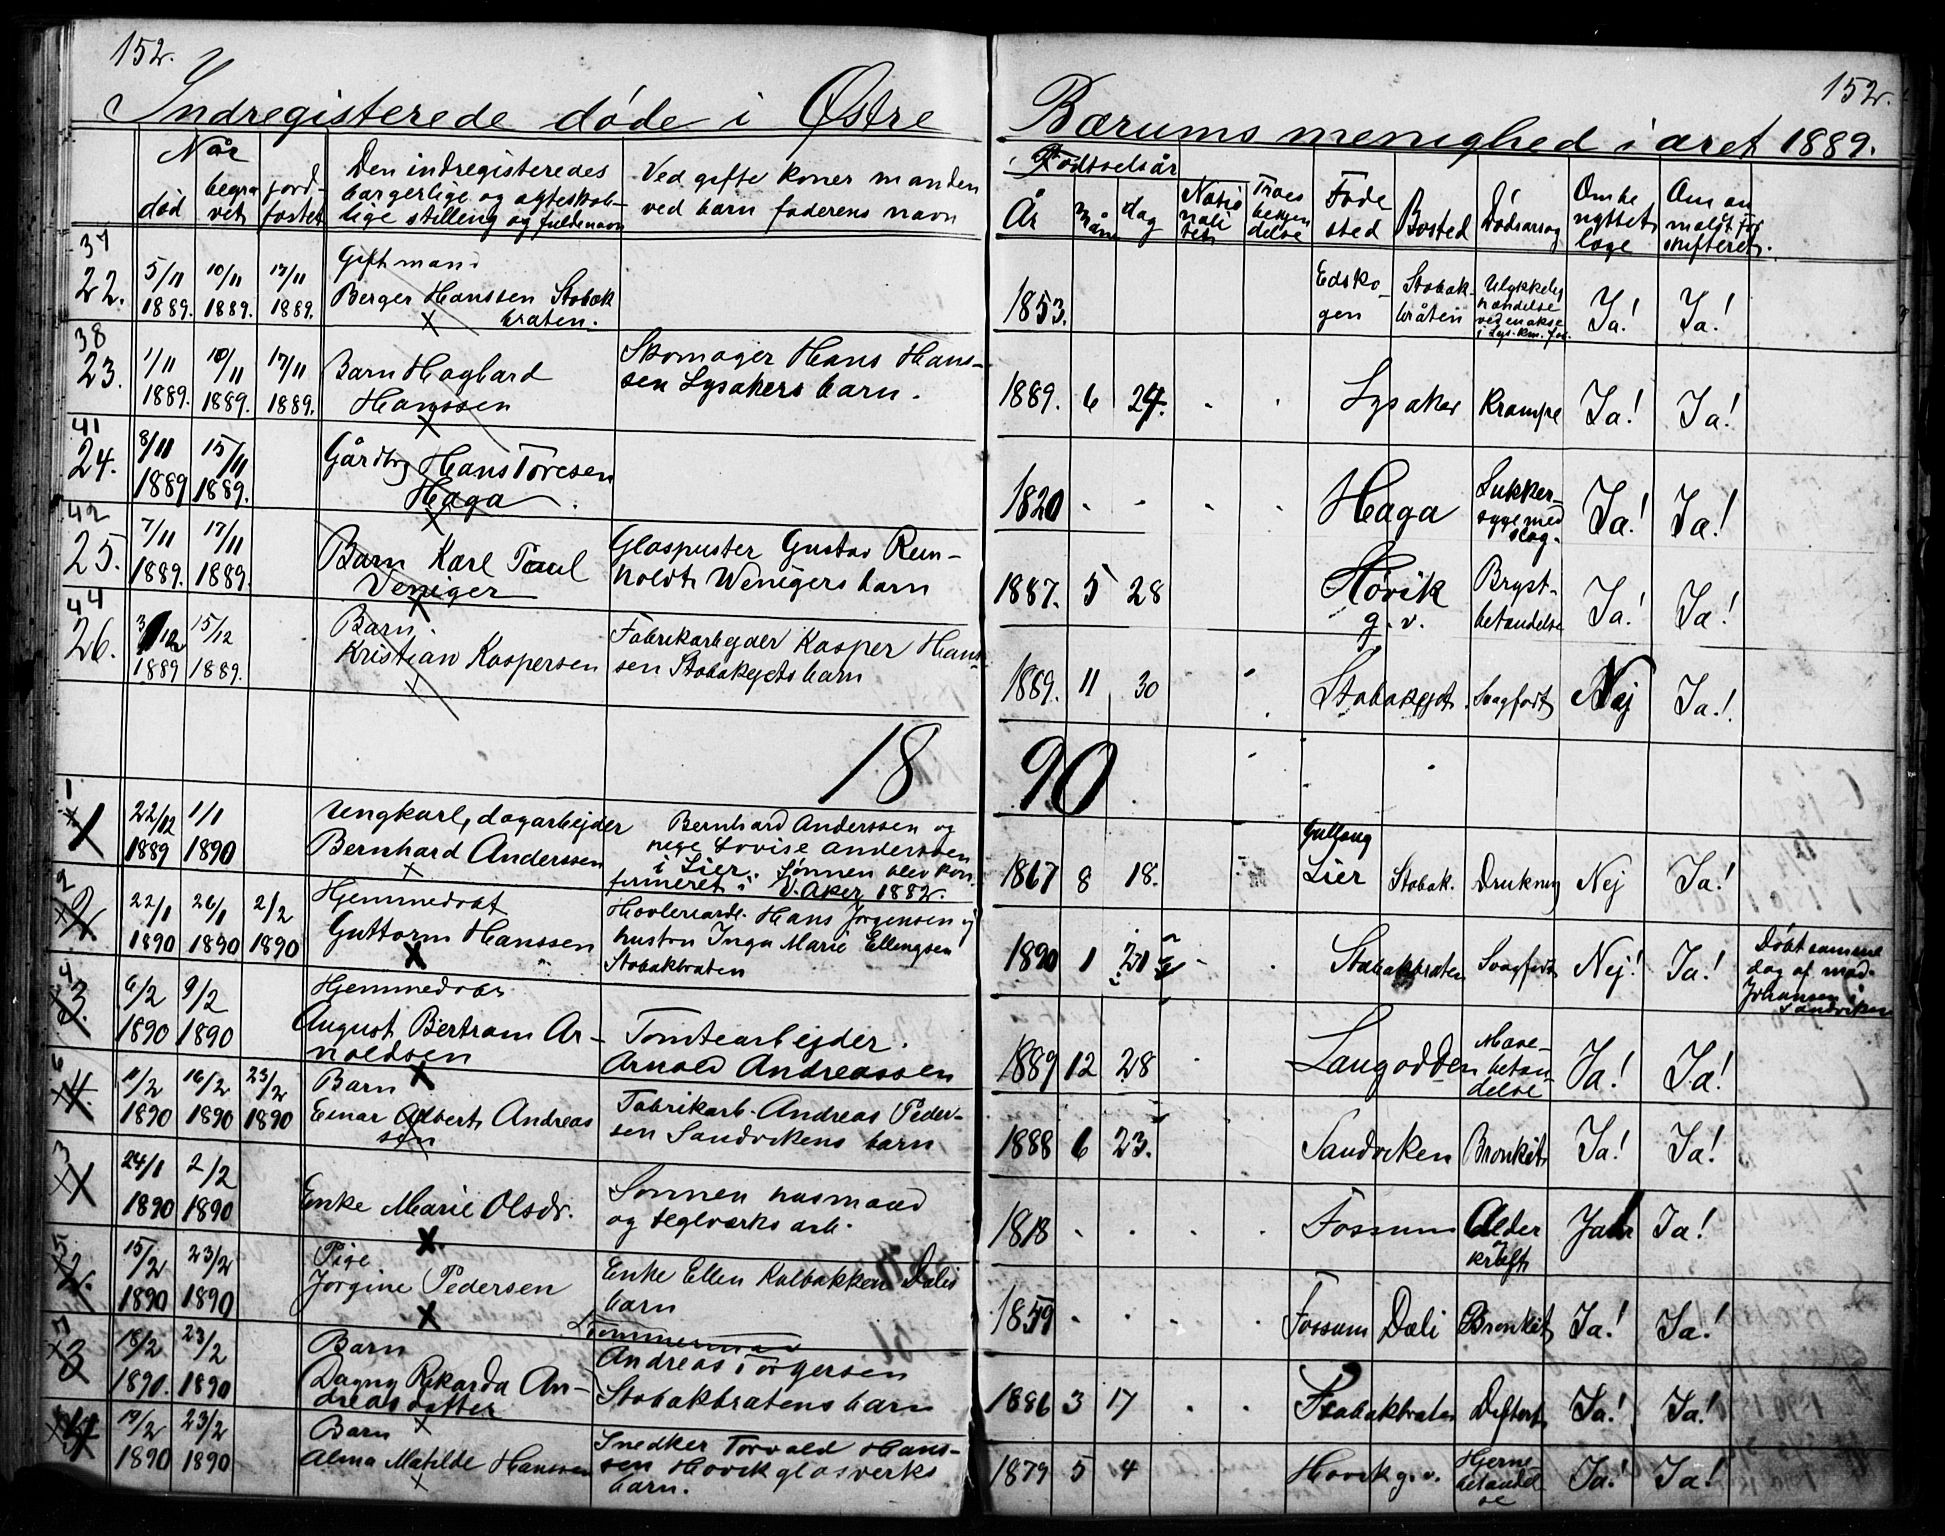 152.
152.
Indregisterede døde i Østre Bærums menighed i æret 1889.
Når
død
begra
vet
jord-
fæstet
Den indregisteredes
borgerlige og ægteskab-
lige stilling og fulde navn
Ved gifte koner manden
ved barn faderens navn
Fødselsår
År
Mån
dag
Natio
nali
tet
Troes
bekjen
delse
Føde
sted
Bosted
Dødsårsag
Om be
nyttet
læge
Om an
meldt for
skifteret.
37
22.
5/11
1889.
10/11
1889.
17/11
1889.
Gift mand
Berger Hanssen Stabæk
bråten.
1853.
Edsko-
gen
Stabæk-
bråten
Ulykkelig
hændelse
ved en akse
Ja!
Ja!
38
23.
1/11
1889.
10/11
1889.
17/11
1889.
Barn Hagbard
Hanssen
Skomager Hans Hans-
sen Lysakers barn.
1889. 6 24.
Lysaker
Krampe
Ja!
Ja!
41
24.
8/11
1889
15/11
1889.
Gårdbr. Hans Toresen
Haga
1820
Haga
Sukker-
syge med
slag.
Ja!
Ja!
42
25.
7/11
1889.
17/11
1889.
Barn Karl Paul
Veniger
Glaspuster Gustav Rein-
holdt Wenigers barn
1887. 5 28
Høvik
g.v.
Bryst-
betændelse
Ja!
Ja!
44
26.
3/12
1889
15/12
1889.
Barn.
Kristian Kaspersen
Fabrikarbejder Kasper Hans-
sen Stabækejets barn
1889. 11 30
Stabækejet.
Svagfødt
Nej
Ja!
1890
1
1
22/12
1889
1/1
1890
Ungkarl, dagarbejder
Bernhard Anderssen
Bernhard Anderssen og
Lovise Anderssen
i Lier. Sønnen blev kon-
firmeret i V. Aker 1882.
1867 8 18.
Gullaug
Lier
Stabæk.
Drukning
Nej
Ja!
2
2
22/1
1890
26/1
1890
2/2
1890
Hjemmedøbt
Guttorm Hanssen
Høvleriarb. Hans Jørgensen og
hustru Inga Marie Ellingsen
Stabækbråten
1890 1 21
Stabækbråten
Svagfødt
Nej!
Ja!
Døbt samme
dag af mad.
Johansen i
Sandviken
4
3.
6/2
1890
9/2
1890
Hjemmedøbt
August Bertram Ar-
noldsen
Tomtearbejder.
Arnold Andreassen
1889 12 28
Langodden
Mave-
betæn-
delse
Ja!
Ja!
6
4.
11/2
1890
16/2
1890
23/2
1890
Barn
Einar Albert Andreas
sen
Fabrikarb. Andreas Peder-
sen Sandvikens barn
1888 6 23.
Sandviken
Bronkit
Ja!
Ja!
3
1
24/1
1890
2/2
1890
Enke Marie Olsdr.
Sønnen husmand
og teglverksarb.
1818
Fossum
Alder
Ja!
Ja!
5
2.
15/2
1890
23/2
1890
Pige
Jørgine Pedersen
Enke Ellen Kalbakken Dælis
barn
1859
Fossum
Dæli
Bronkit
Ja!
Ja!
7
3
18/2
1890.
23/2
1890
Barn
Dagny Rikarda An-
dreasdatter
Tømmermand
Andreas Torgersen
Stabækbråtens barn
1886 3 17
Stabækbråten
Difterit
Ja!
Ja!
4
19/2
1890
23/2
1890
Barn
Alma Matilde Hanssen
Snedker Torvald Hans-
sen Høvik glasverks
barn.
1879 5 4
Høvik g.v.
Hjerne-
betændel
se
Ja!
Ja!